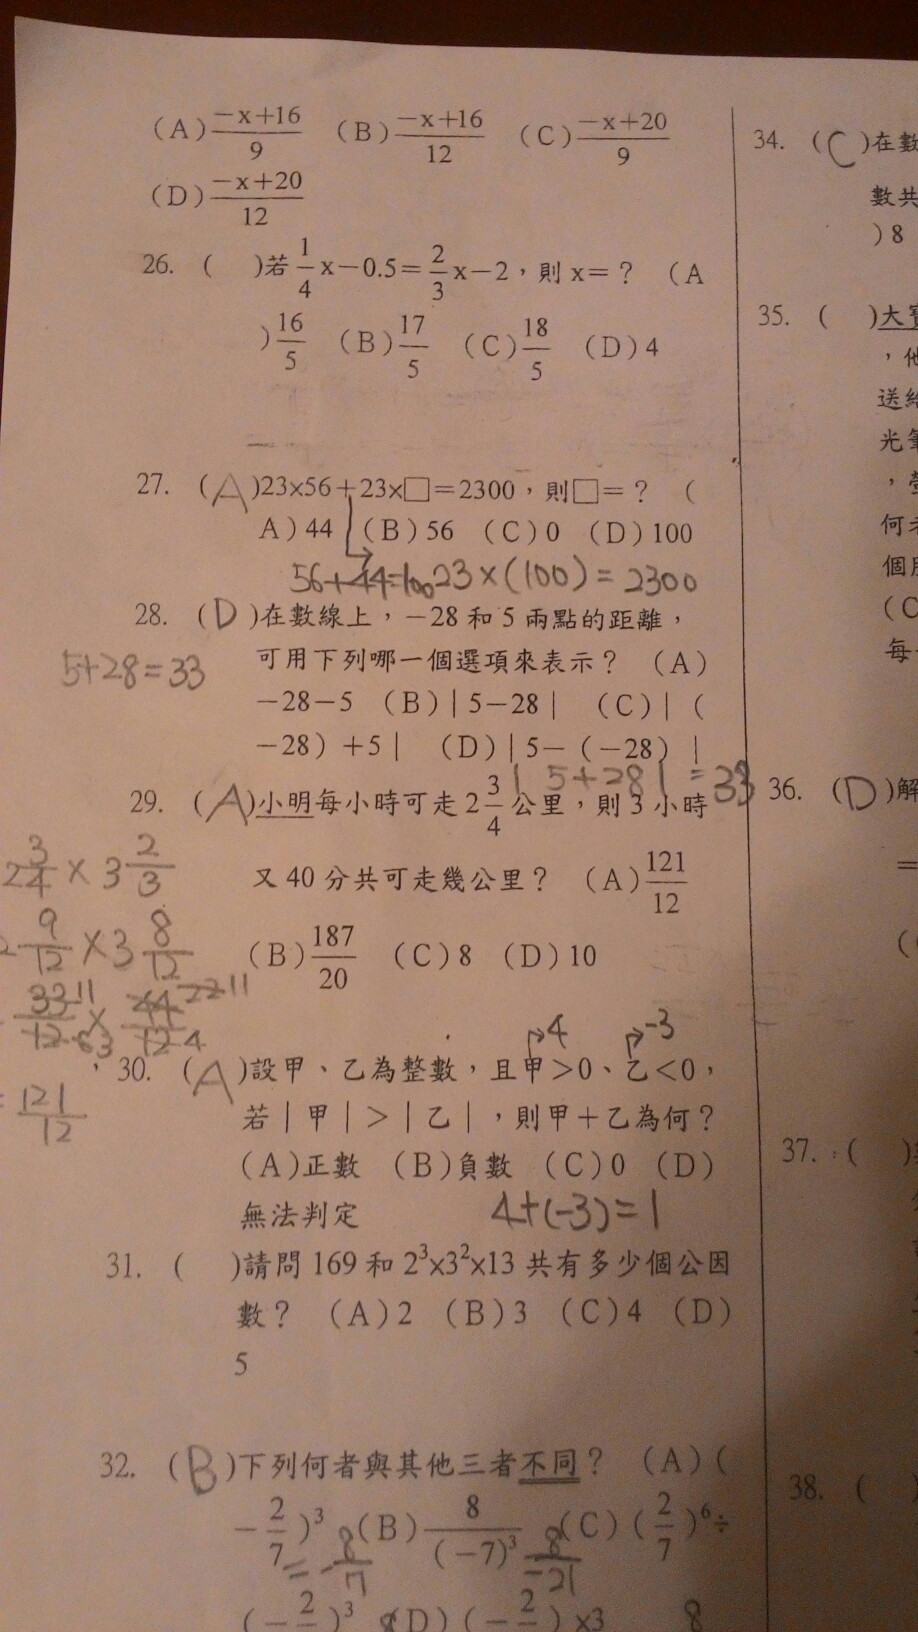 (A) (−x+16)/9 (B) (−x+16)/12 (C) (−x+20)/9
(D) (−x+20)/12
26. ( )若 1/4 x−0.5= 2/3 x−2，則 x=？ (A
) 16/5 (B) 17/5 (C) 18/5 (D) 4
27. (A)23×56+23×□=2300，則□=？ (
A) 44 (B) 56 (C) 0 (D) 100
56+44=100 23×(100)=2300
28. (D)在數線上，−28 和 5 兩點的距離，
5+28=33
可用下列哪一個選項來表示？ (A)
−28−5 (B)|5−28| (C)|(
−28)+5| (D)|5−(−28)|
|5+28|=33
29. (A)小明每小時可走 2 3/4 公里，則 3 小時
2 3/4 × 3 2/3
又 40 分共可走幾公里？ (A) 121/12
9/12 × 3 8/12
(B) 187/20 (C) 8 (D) 10
33 11/12 6 3 × 44 22 11/12 4
4 −3
30. (A)設甲、乙為整數，且甲>0、乙<0，
= 121/12
若|甲|>|乙|，則甲+乙為何？
(A)正數 (B)負數 (C) 0 (D)
無法判定 4+(−3)=1
31. ( )請問 169 和 2³×3²×13 共有多少個公因
數？ (A) 2 (B) 3 (C) 4 (D)
5
32. (B)下列何者與其他三者不同？ (A) (
−2/7)³ (B) 8/(−7)³ (C) (2/7)⁶÷
=−8/7 8/−21
(−2 )³ (D) (−2 )×3 8
34. (C)在數
數共
)8
35. ( )大寶
，他
送給
光筆
，螢
何者
個朋
(C
每
36. (D)解
=
(
37. ( )
38. (